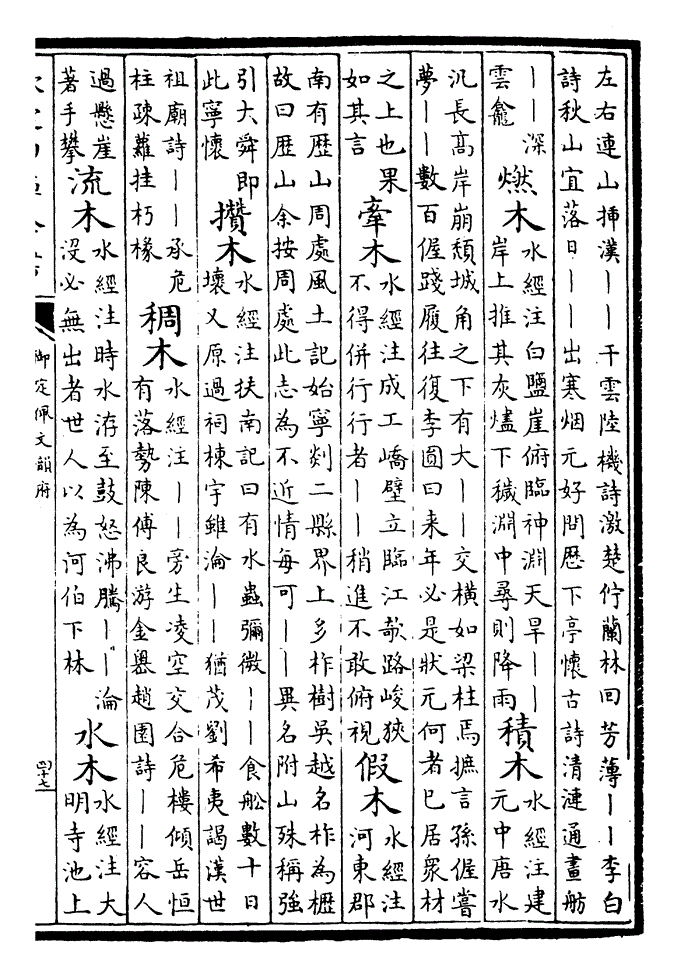 左右連山揷漢丨丨干雲陸機詩激楚佇蘭林回芳薄丨丨李白
詩秋山宜落日丨丨出寒烟元好問歴下亭懷古詩清漣通畫舫
丨丨深
雲龕
燃木
水經注白鹽崖俯臨神淵天旱丨丨
岸上推其灰燼下穢淵中尋則降雨
積木
水經注建
元中唐水
汎長高岸崩頹城角之下有大丨丨交橫如梁柱焉摭言孫偓嘗
夢丨丨數百偓踐履往復李圓曰来年必是狀元何者已居衆材
之上也果
如其言
牽木
水經注成工嶠壁立臨江欹路峻狹
不得併行行者丨丨稍進不敢俯視
假木
水經注
河東郡
南有歴山周處風土記始寧剡二縣界上多柞樹吳越名柞為櫪
故曰歴山余按周處此志為不近情每可丨丨異名附山殊稱強
引大舜即
此寧懷
攢木
水經注扶南記曰有水蟲彌微丨丨食舩數十日
壞又原過祠棟宇雖淪丨丨猶茂劉希夷謁漢世
祖廟詩丨丨承危
柱疎蘿挂朽椽
稠木
水經注丨丨旁生凌空交合危樓傾岳恒
有落勢陳傅良游金嶴趙園詩丨丨容人
過懸崖
著手攀
流木
水經注時水洊至鼓怒沸騰丨丨淪
沒必無出者世人以為河伯下林
水木
水經注大
明寺池上
御定佩文韻府
四十七